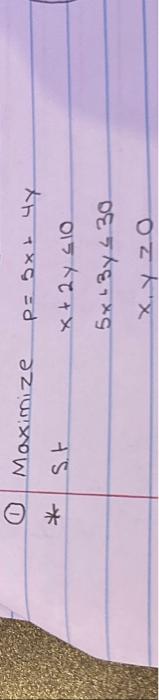 ① Maximize P = 5x + 4y
* s.t x + 2y ≤ 10
5x + 3y ≤ 30
x, y ≥ 0